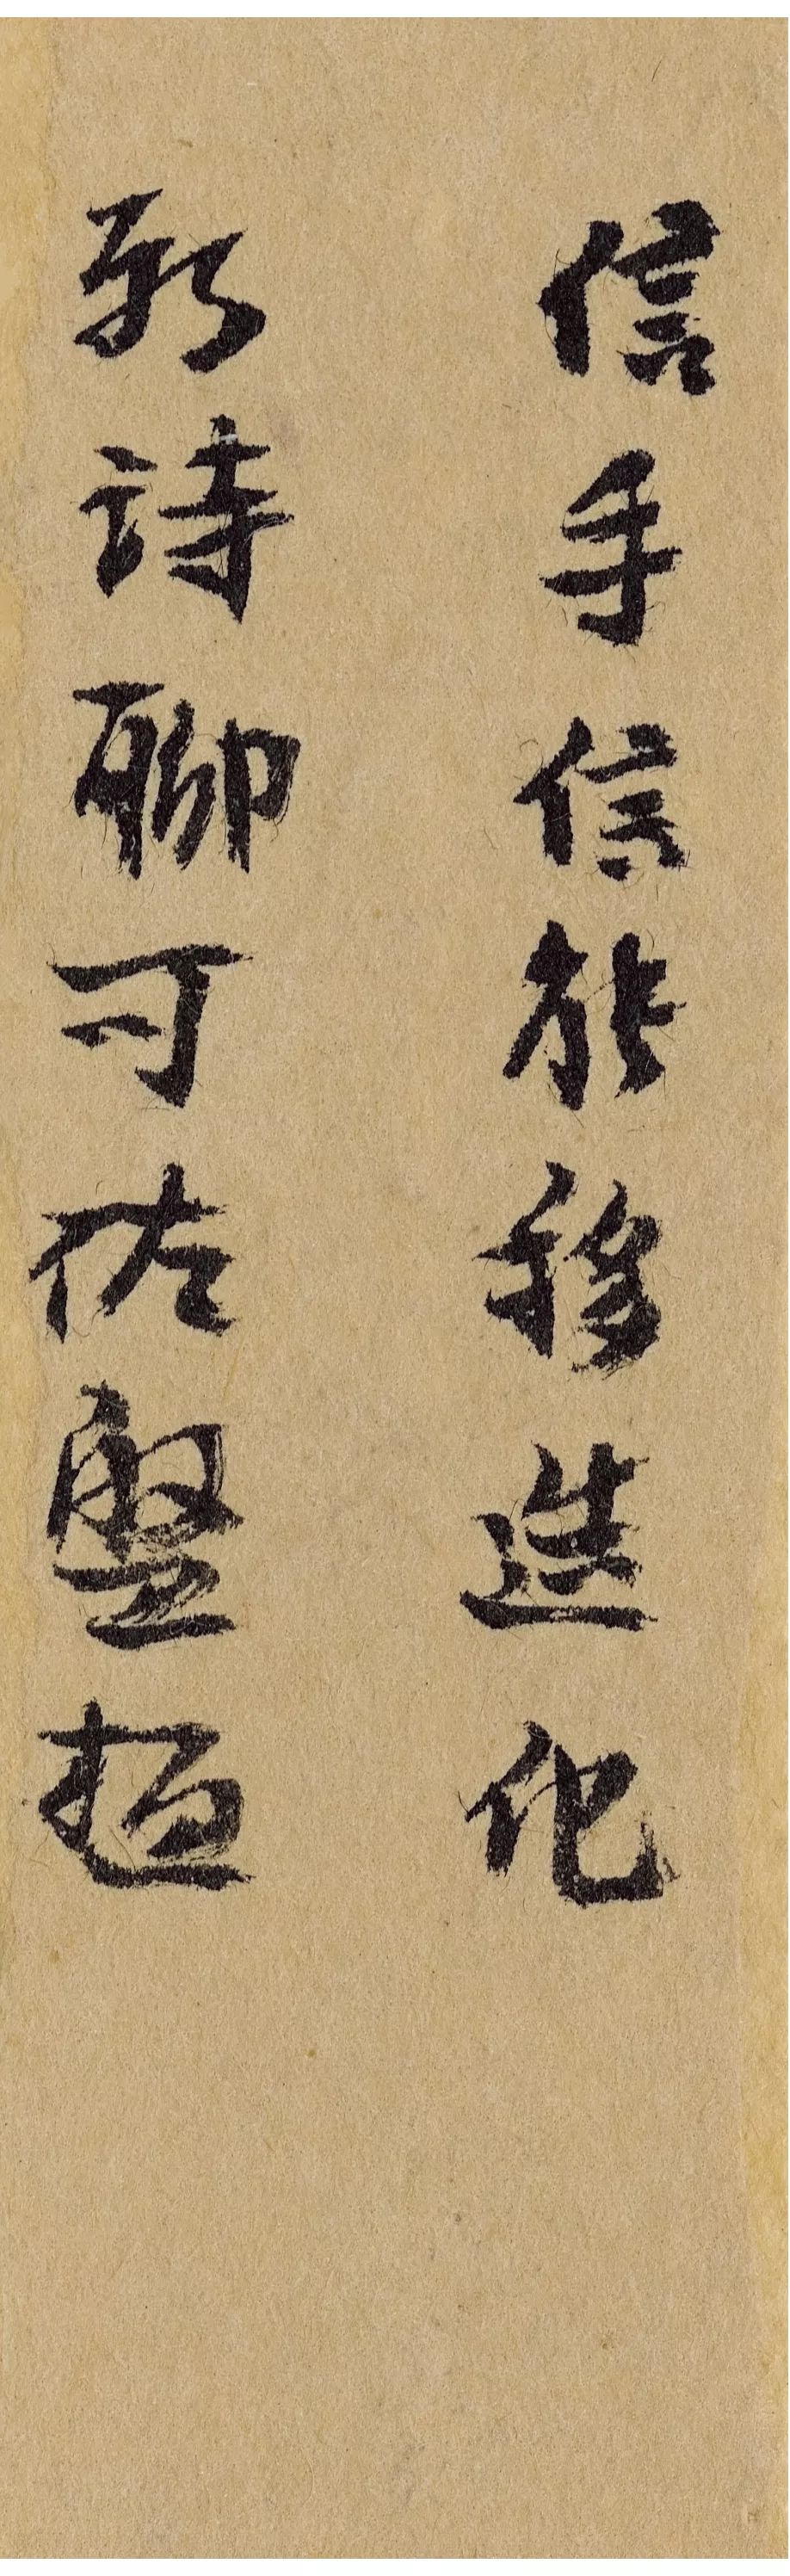 信手信能移造化
新詩聊可佐盤桓